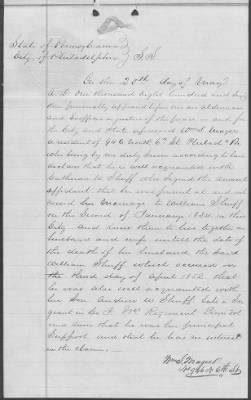 State of Pennsylvania
City of Philadelphia } S.S
On this 20th day of May
A D one thousand eight hundred and
personally appeared before me an alderman
and Exofficio a Justice of the peace in and for
the City and State aforesaid Wm S. Mager
a resident of 946 North 6th St Philad Pa
who being by me duly sworn according to law
that he is well acquainted with
Catharine W Shuff who signed the
affidavit that he was present at and
her marriage to William Shuff
on the Second of January 1832 in this
City and knew them to live together as
husband and wife untill the date of the
death of her husband the said
William Shuff which occured on
the third day of April 1852 that
he was also well acquainted with
her Son Andrew W Shuff late a
in Co F Regiment Penn Vol
and knew that he was her principal
Support and that he has no interest
in the claim.
Wm S. Mager
No 946 N 6th St